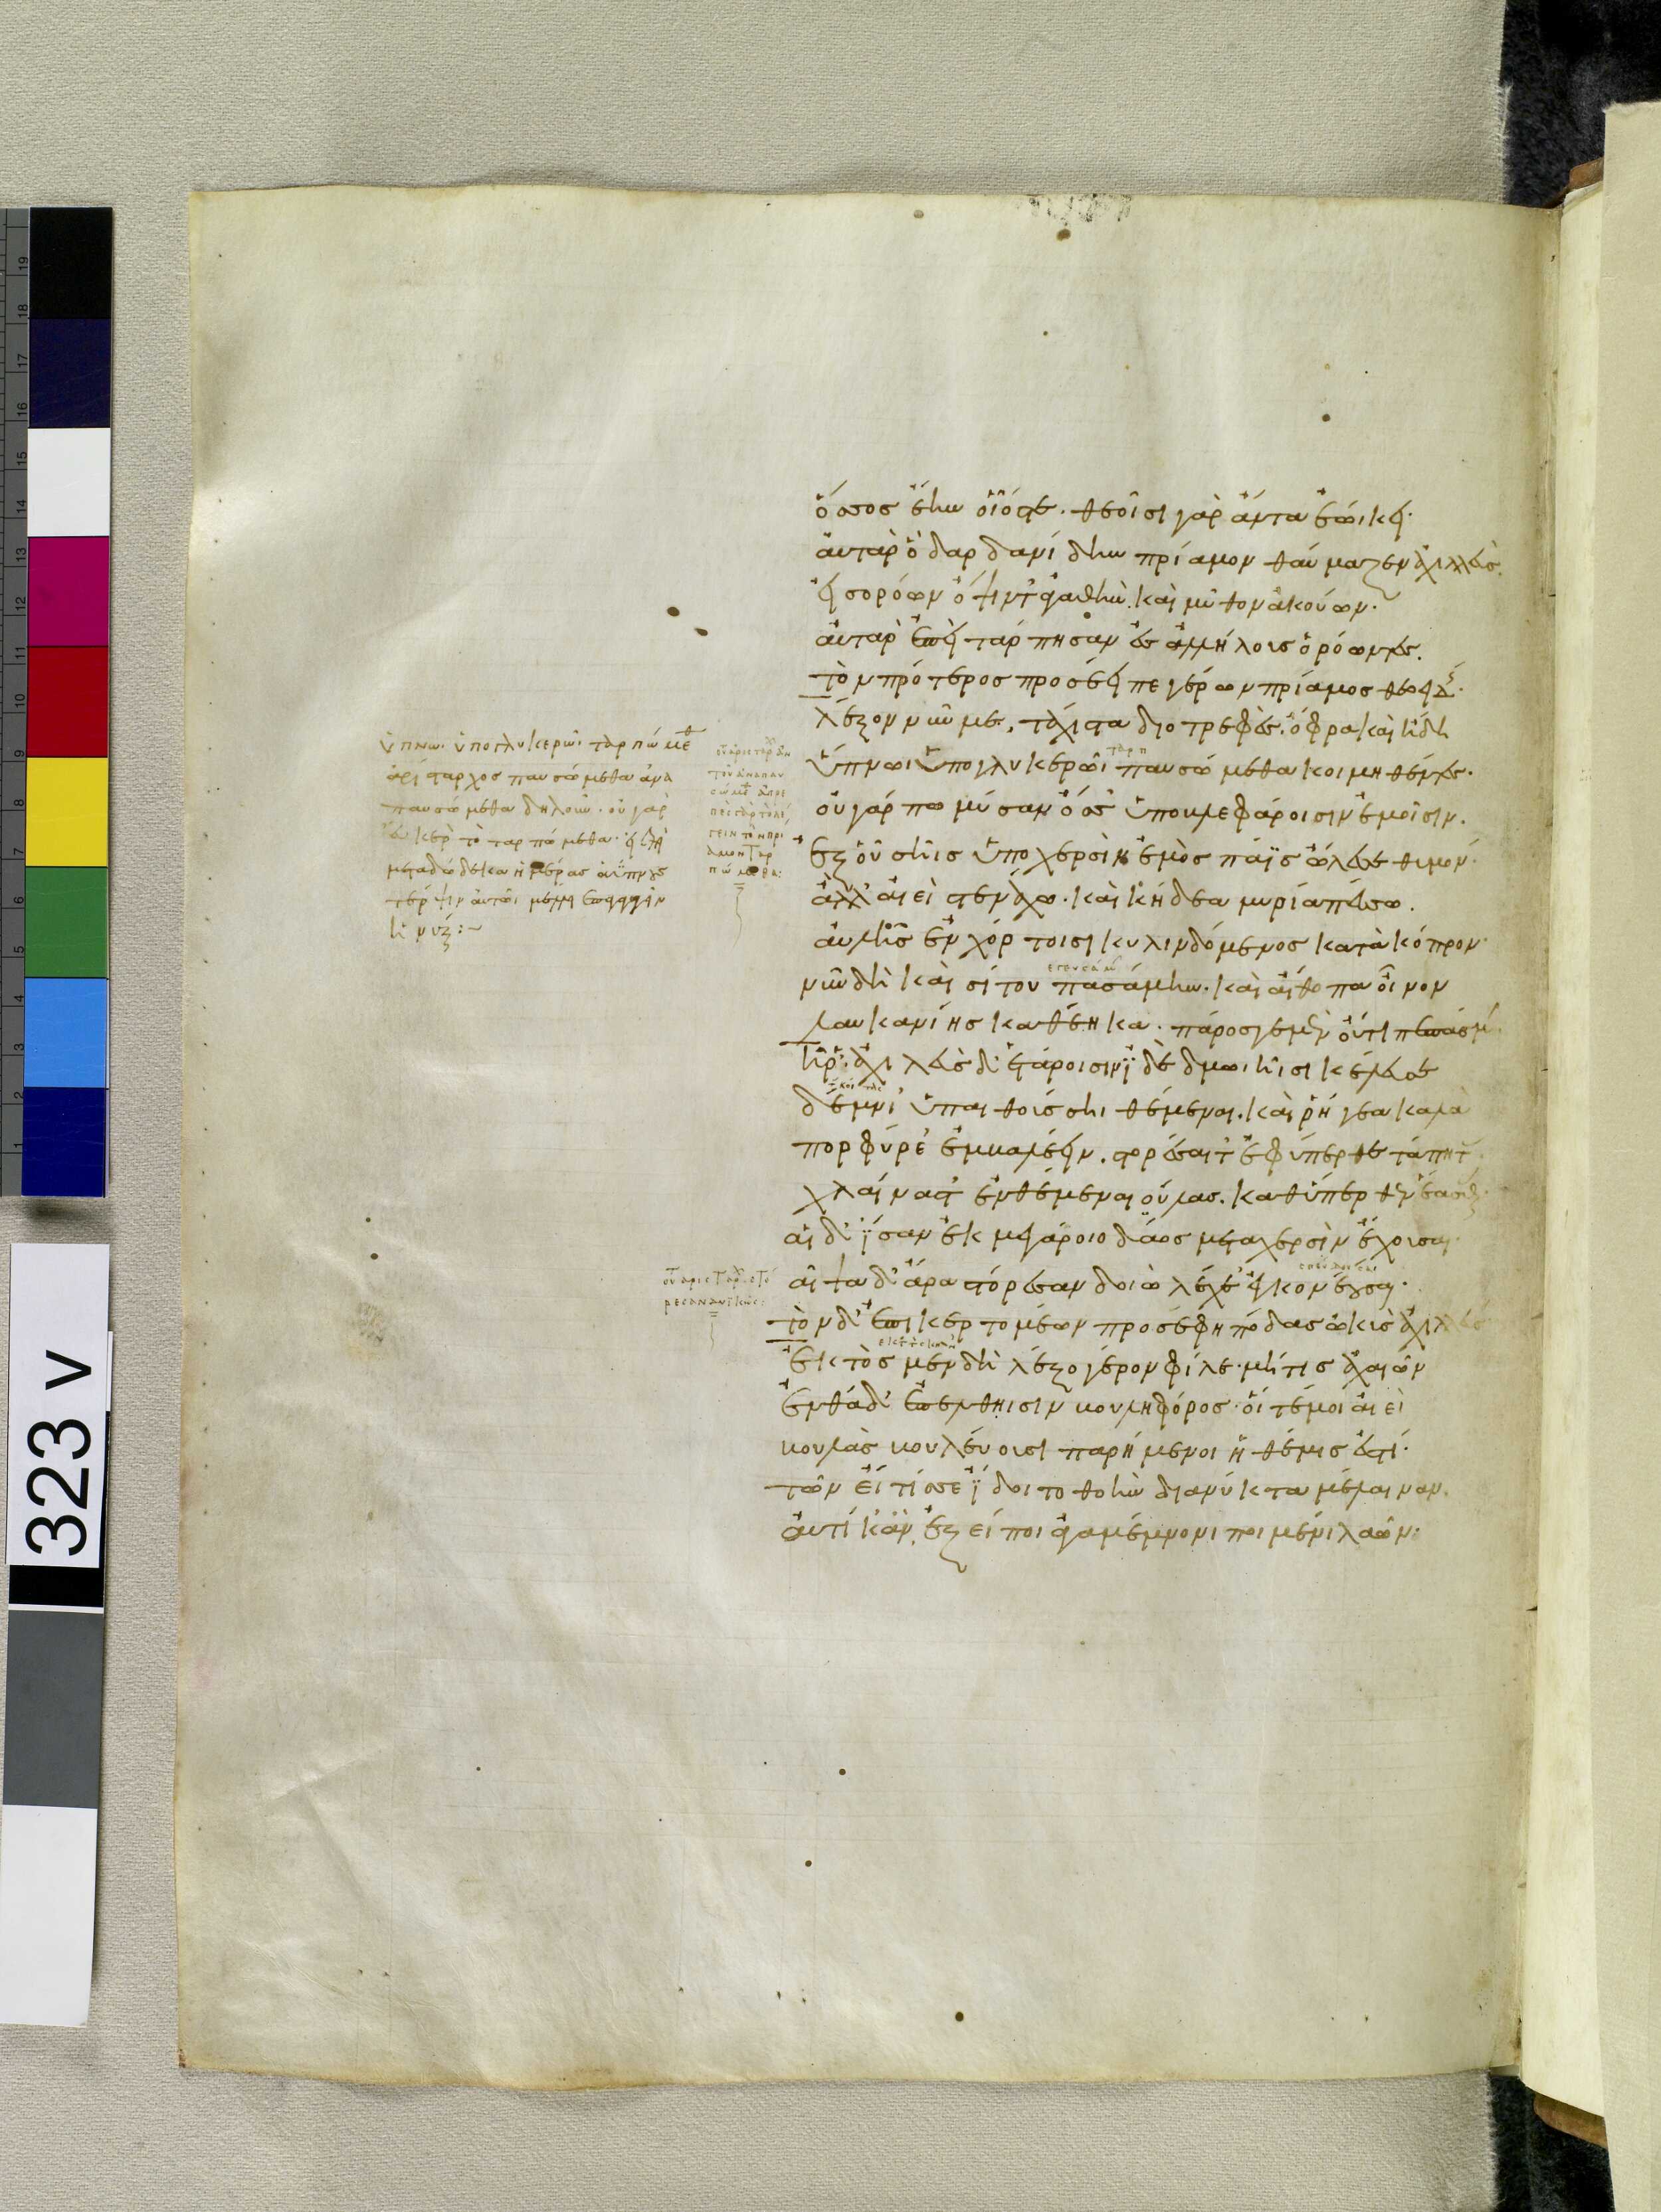 ὅσσος ἔην οἷός τε· θεοῖσι γὰρ ἄντα ἐώικει·
αὐτὰρ ὁ Δαρδανίδην Πρίαμον θαύμαζεν Ἀχιλλεὺς
εἰσορόων ὄψίν τ' ἀγαθὴν καὶ μῦθον ἀκούων·
αὐτὰρ ἐπεὶ τάρπησαν ἐς ἀλλήλους ὁρόωντες.
τὸν πρότερος προσέειπε γέρων Πρίαμος θεοειδής·
λέξον νῦν με τάχιστα διοτρεφές· ὄφρα καὶ ἤδη
ταρπ
ὕπνωι ὕπο γλυκερῶι παυσώμεθα κοιμηθέντες·
οὐ γάρ πω μύσαν ὄσσε ὑπὸ βλεφάροισιν ἐμοῖσιν.
ἐξ οὗ σῆις ὑπὸ χερσὶν ἐμὸς πάϊς ὤλεσε θυμόν·
ἀλλ' αἰεὶ στενάχω· καὶ κήδεα μυρία πέσσω.
αὐλῆς ἐν χόρτοισι κυλινδόμενος κατὰ κόπρον·
νῦν δὴ καὶ σίτου πασάμην· καὶ αἴθοπα οἶνον
λαυκανίης καθέηκα· πάρος γε μὲν οὔτι πεπάσμην
ἦ ῥ' Ἀχιλεὺς δ' ἑτάροισιν ἰδὲ δμωιῆισι κέλευσε
δέμνι' ὑπ' αἰθούσηι θέμεναι· καὶ ῥήγεα καλὰ
πορφύρε' ἐμβαλέειν· στορέσαι τ' ἐφύπερθε τάπητας
χλαίνας τ' ἐνθέμεναι οὔλας· καθύπερθεν ἕσασθαι·
αἱ δ' ἴσαν ἐκ μεγάροιο δάος μετὰ χερσὶν ἔχουσαι·
αἶψα δ' ἄρα στόρεσαν δοιὼ λέχε' ἐγκονέουσαι·
τὸν δ' ἐπικερτομέων προσέφη πόδας ὠκὺς Ἀχιλλεύς
ἐκτὸς μὲν δὴ λέξο γέρον φίλε· μήτις Ἀχαιῶν
ἐνθάδ' ἐπέλθηισιν βουληφόρος· οἵ τέ μοι αἰεὶ
βουλὰς βουλεύουσι παρήμενοι ἣ θέμις ἐστί·
τῶν εἴ τίς σε ἴδοιτο θοὴν διὰ νύκτα μέλαιναν.
αὐτίκ' ἂν ἐξείποι Ἀγαμέμνονι ποιμένι λαῶν·
ὕπνωι ὕπο γλυκερῶι ταρπώμεθα
ἀρίσταρχος παυσώμεθα ἀνα
παυσώμεθα δηλοῖ· οὐ γὰρ
τὸ ταρπώμεθα·
μετὰ δώδεκα ἡμέρας
τέρψιν αὐτῶι
ἡ νύξ:~
323 v